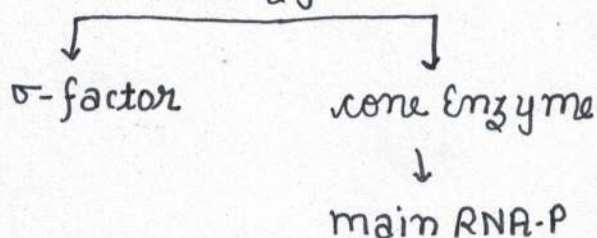 σ-factor
core Enzyme
main RNA-P